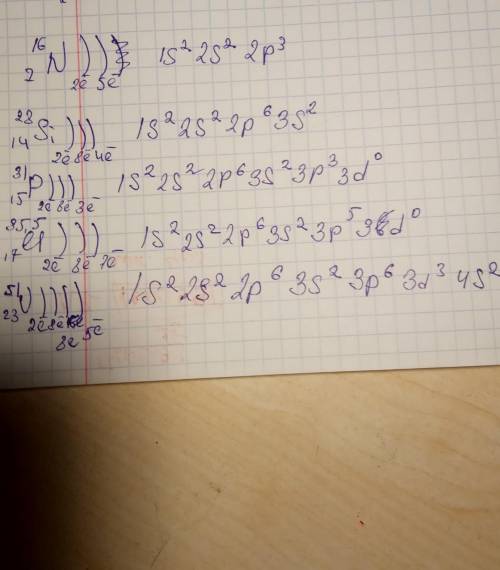 16 7 N ) ) 2ē 5ē 1s² 2s² 2p³
28 14 Si ) ) ) 2ē 8ē 4ē 1s² 2s² 2p⁶ 3s²
31 15 P ) ) ) 2ē 8ē 3ē 1s² 2s² 2p⁶ 3s² 3p³ 3d⁰
35,5 17 Cl ) ) ) 2ē 8ē 7ē 1s² 2s² 2p⁶ 3s² 3p⁵ 3d⁰
51 23 V ) ) ) ) 2ē 8ē 8ē 5ē 1s² 2s² 2p⁶ 3s² 3p⁶ 3d³ 4s²